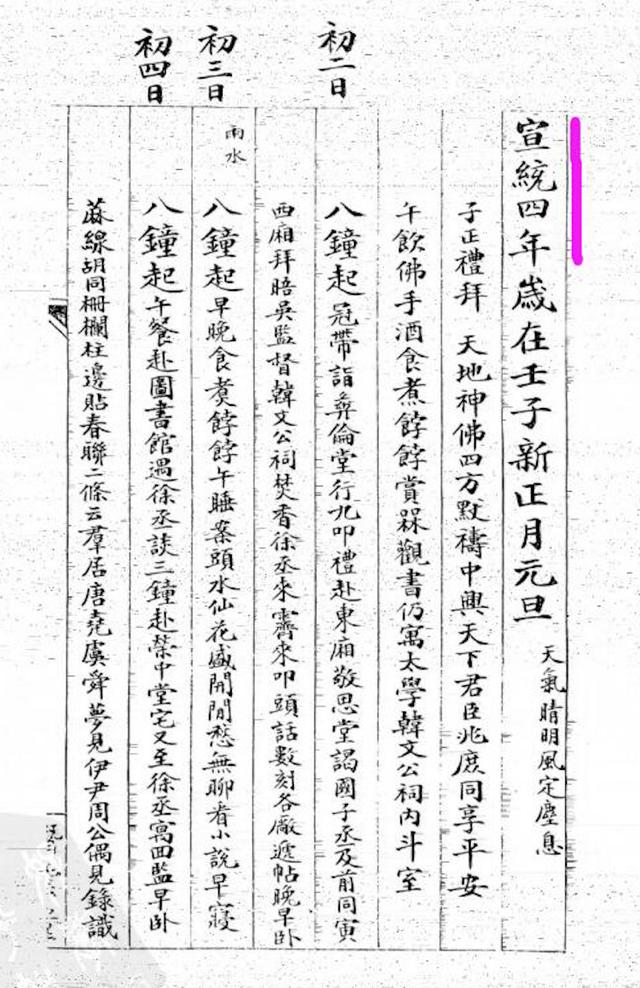 宣統四年歲在壬子新正月元旦 天氣晴明風定塵息
子正禮拜 天地神佛四方默禱中興天下君臣兆庶同享平安
午飲佛手酒食煮餑餑賞罧觀書仍寓太學韓文公祠內斗室
初二日
八鐘起冠帶詣彝倫堂行九叩禮赴東廂敬思堂謁國子丞及前同寅
西廂拜晤吳監督韓文公祠焚香徐丞來霽來叩頭話數刻各廠遞帖晚早卧
初三日
雨水
八鐘起早晚食煑餑餑午睡案頭水仙花盛開閒愁無聊看小說早寢
初四日
八鐘起午餐赴圖書館遇徐丞談三鐘赴榮中堂宅又至徐丞寓回監早卧
蔴線胡同柵欄柱邊貼春聯二條云羣居唐堯虞舜夢見伊尹周公偶見錄識